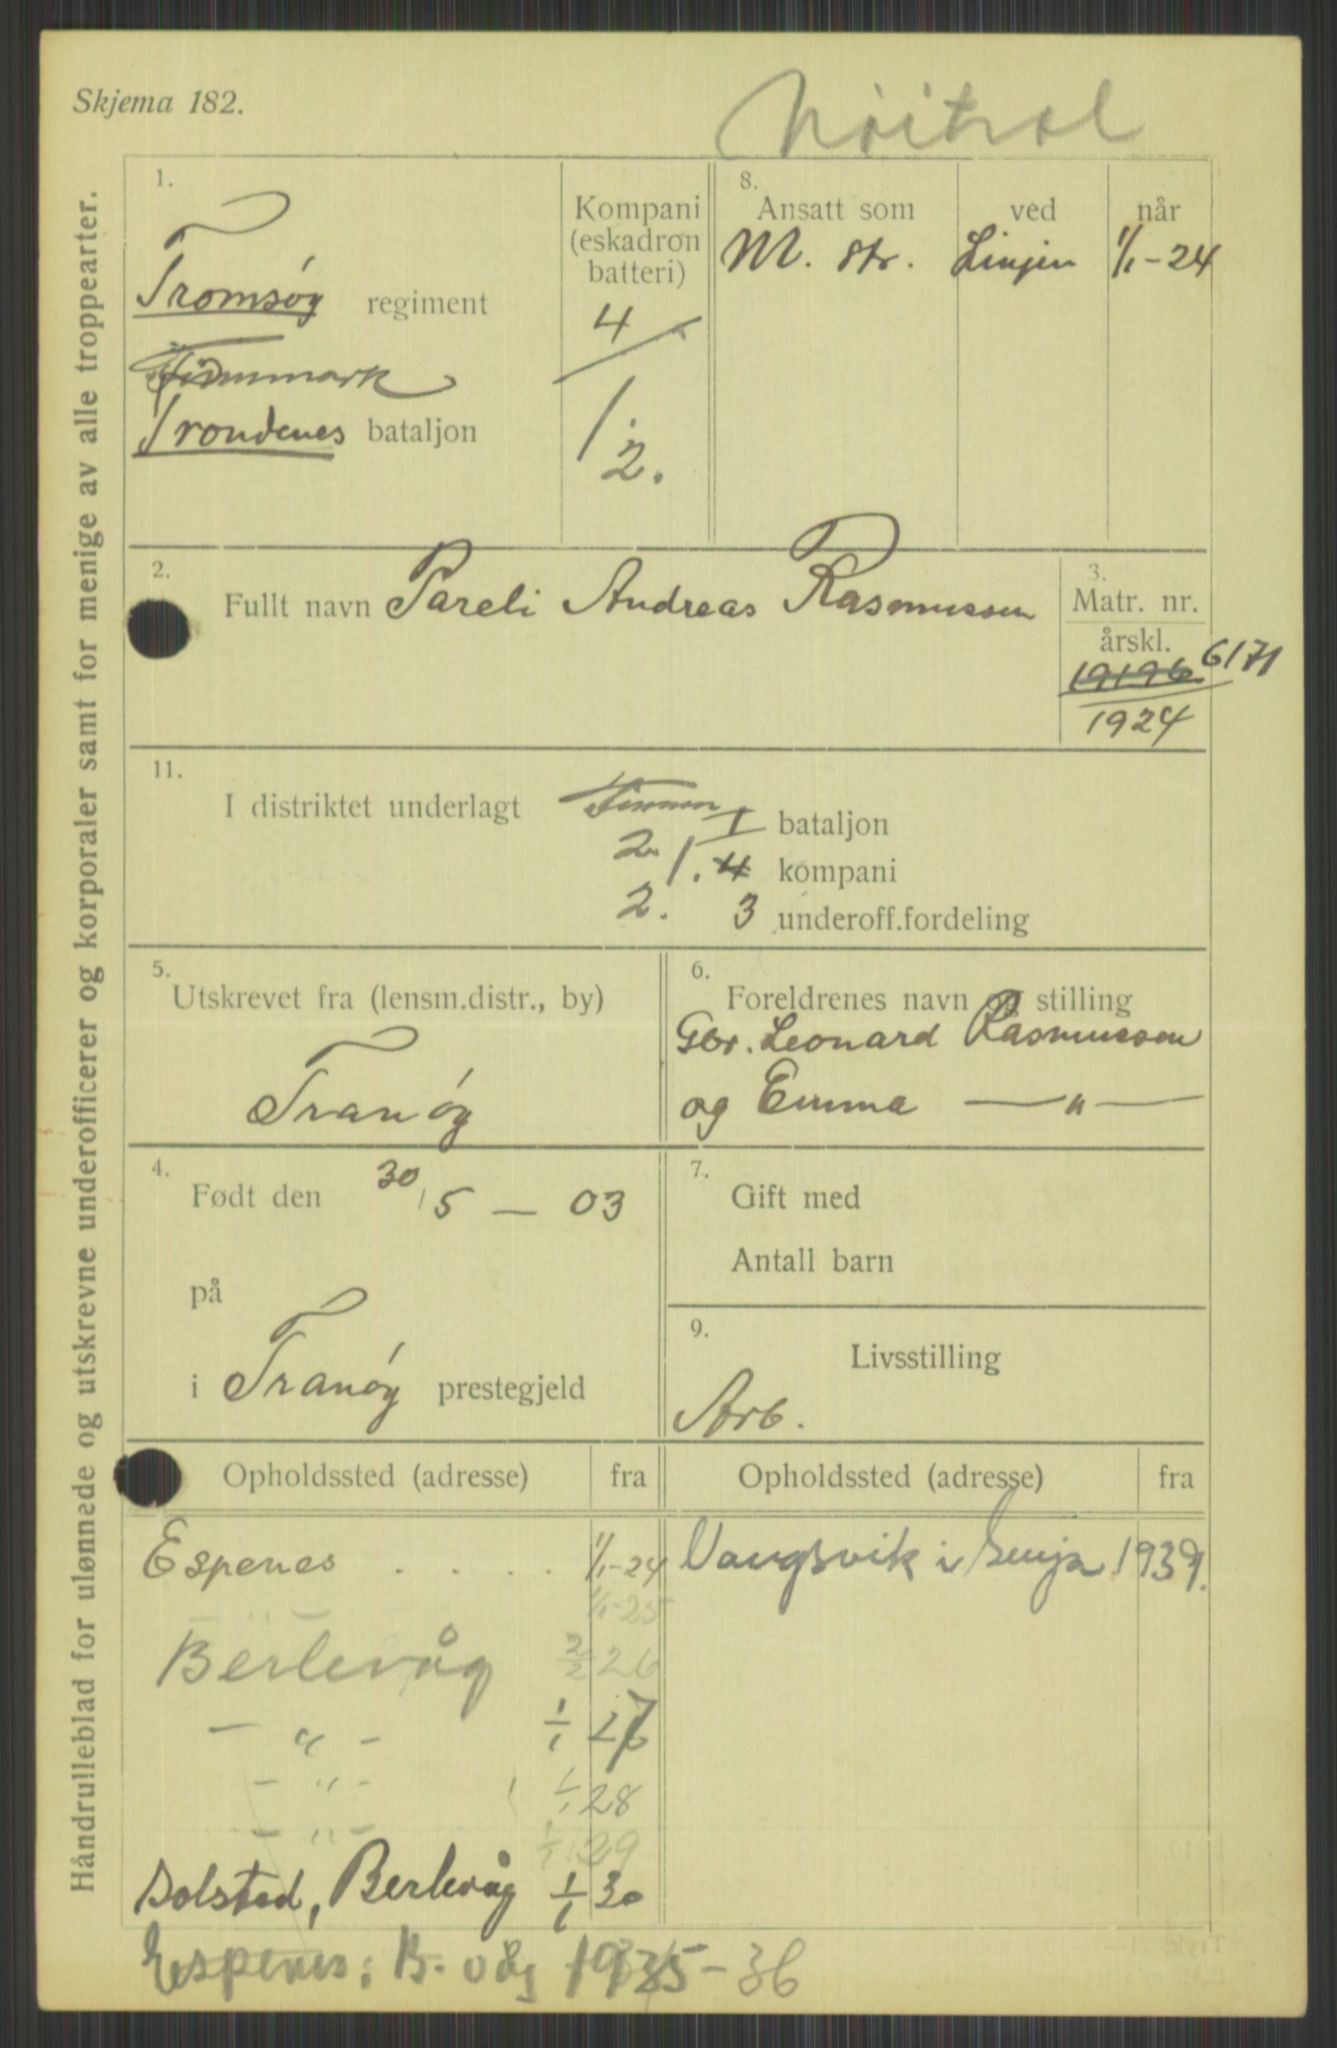 Skjema 182.
Nøitral
Håndrulleblad for ulønnede og utskrevne underofficerer og korporaler samt for menige av alle troppearter.
1.
Tromsøy regiment
Finnmark
Trondenes bataljon
Kompani
(eskadron
batteri)
4
1.
2.
8.
Ansatt som ved når
M. str. Linjen 1/1-24
2.
Fullt navn Pareli Andreas Rasmussen
3.
Matr. nr.
årskl.
19196 6171
1924
11.
I distriktet underlagt Finnm I bataljon
2. 1. 4 kompani
2. 3 underoff.fordeling
5.
Utskrevet fra (lensm.distr., by)
Tranøy
6.
Foreldrenes navn og stilling
Gbr. Leonard Rasmussen
og Emma — " —
4.
Født den 30/5 — 03
på
i Tranøy prestegjeld
7.
Gift med
Antall barn
9.
Livsstilling
Arb.
Opholdssted (adresse) fra
Espenes . . . . 1/1-24
1/1-25
Berlevåg 2/2 26
— " — 1/1 27
— " — 1/1 28
— " — 1/1 29
Solstad, Berlevåg 1/1 30
Espenes: 1935-36
Opholdssted (adresse) fra
Vangsvik i Senja 1939.